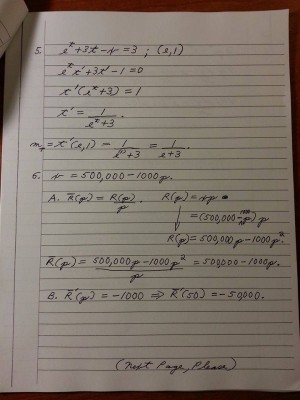 5. e^t + 3t - r = 3 ; (e,1)
e^t t' + 3t' - 1 = 0
t'(e^t + 3) = 1
t' = 1/(e^t + 3) .
m_T = t'(e,1) = 1/(e^1 + 3) = 1/(e + 3) .
6. r = 500,000 - 1000p.
A. R̄(p) = R(p)/p . R(p) = rp
= (500,000 - p) p
R(p) = 500,000p - 1000p².
R(p) = (500,000p - 1000p²)/p = 500,000 - 1000p.
B. R̄'(p) = -1000 ⇒ R̄'(50) = -50,000.
(Next Page, Please)